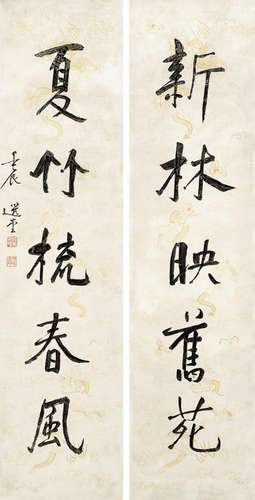 新林映舊苑
夏竹梳春風
壬辰 選堂